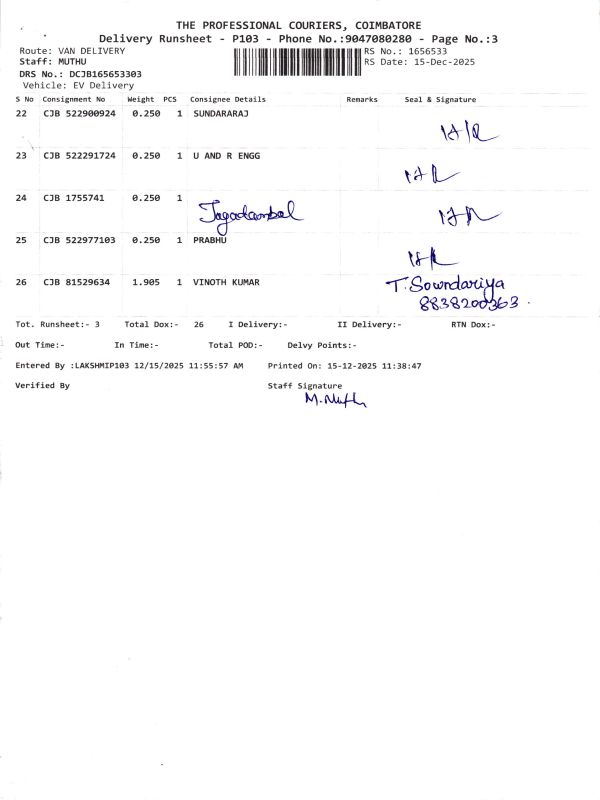 THE PROFESSIONAL COURIERS, COIMBATORE
Delivery Runsheet - P103 - Phone No.:9047080280 - Page No.:3
Route: VAN DELIVERY RS No.: 1656533
Staff: MUTHU RS Date: 15-Dec-2025
DRS No.: DCJB165653303
Vehicle: EV Delivery
S No Consignment No Weight PCS Consignee Details Remarks Seal & Signature
22 CJB 522900924 0.250 1 SUNDARARAJ
23 CJB 522291724 0.250 1 U AND R ENGG
24 CJB 1755741 0.250 1 Jagadambal
25 CJB 522977103 0.250 1 PRABHU
26 CJB 81529634 1.905 1 VINOTH KUMAR T. Sowndariya
8838200363.
Tot. Runsheet:- 3 Total Dox:- 26 I Delivery:- II Delivery:- RTN Dox:-
Out Time:- In Time:- Total POD:- Delvy Points:-
Entered By :LAKSHMIP103 12/15/2025 11:55:57 AM Printed On: 15-12-2025 11:38:47
Verified By Staff Signature
M. Muth